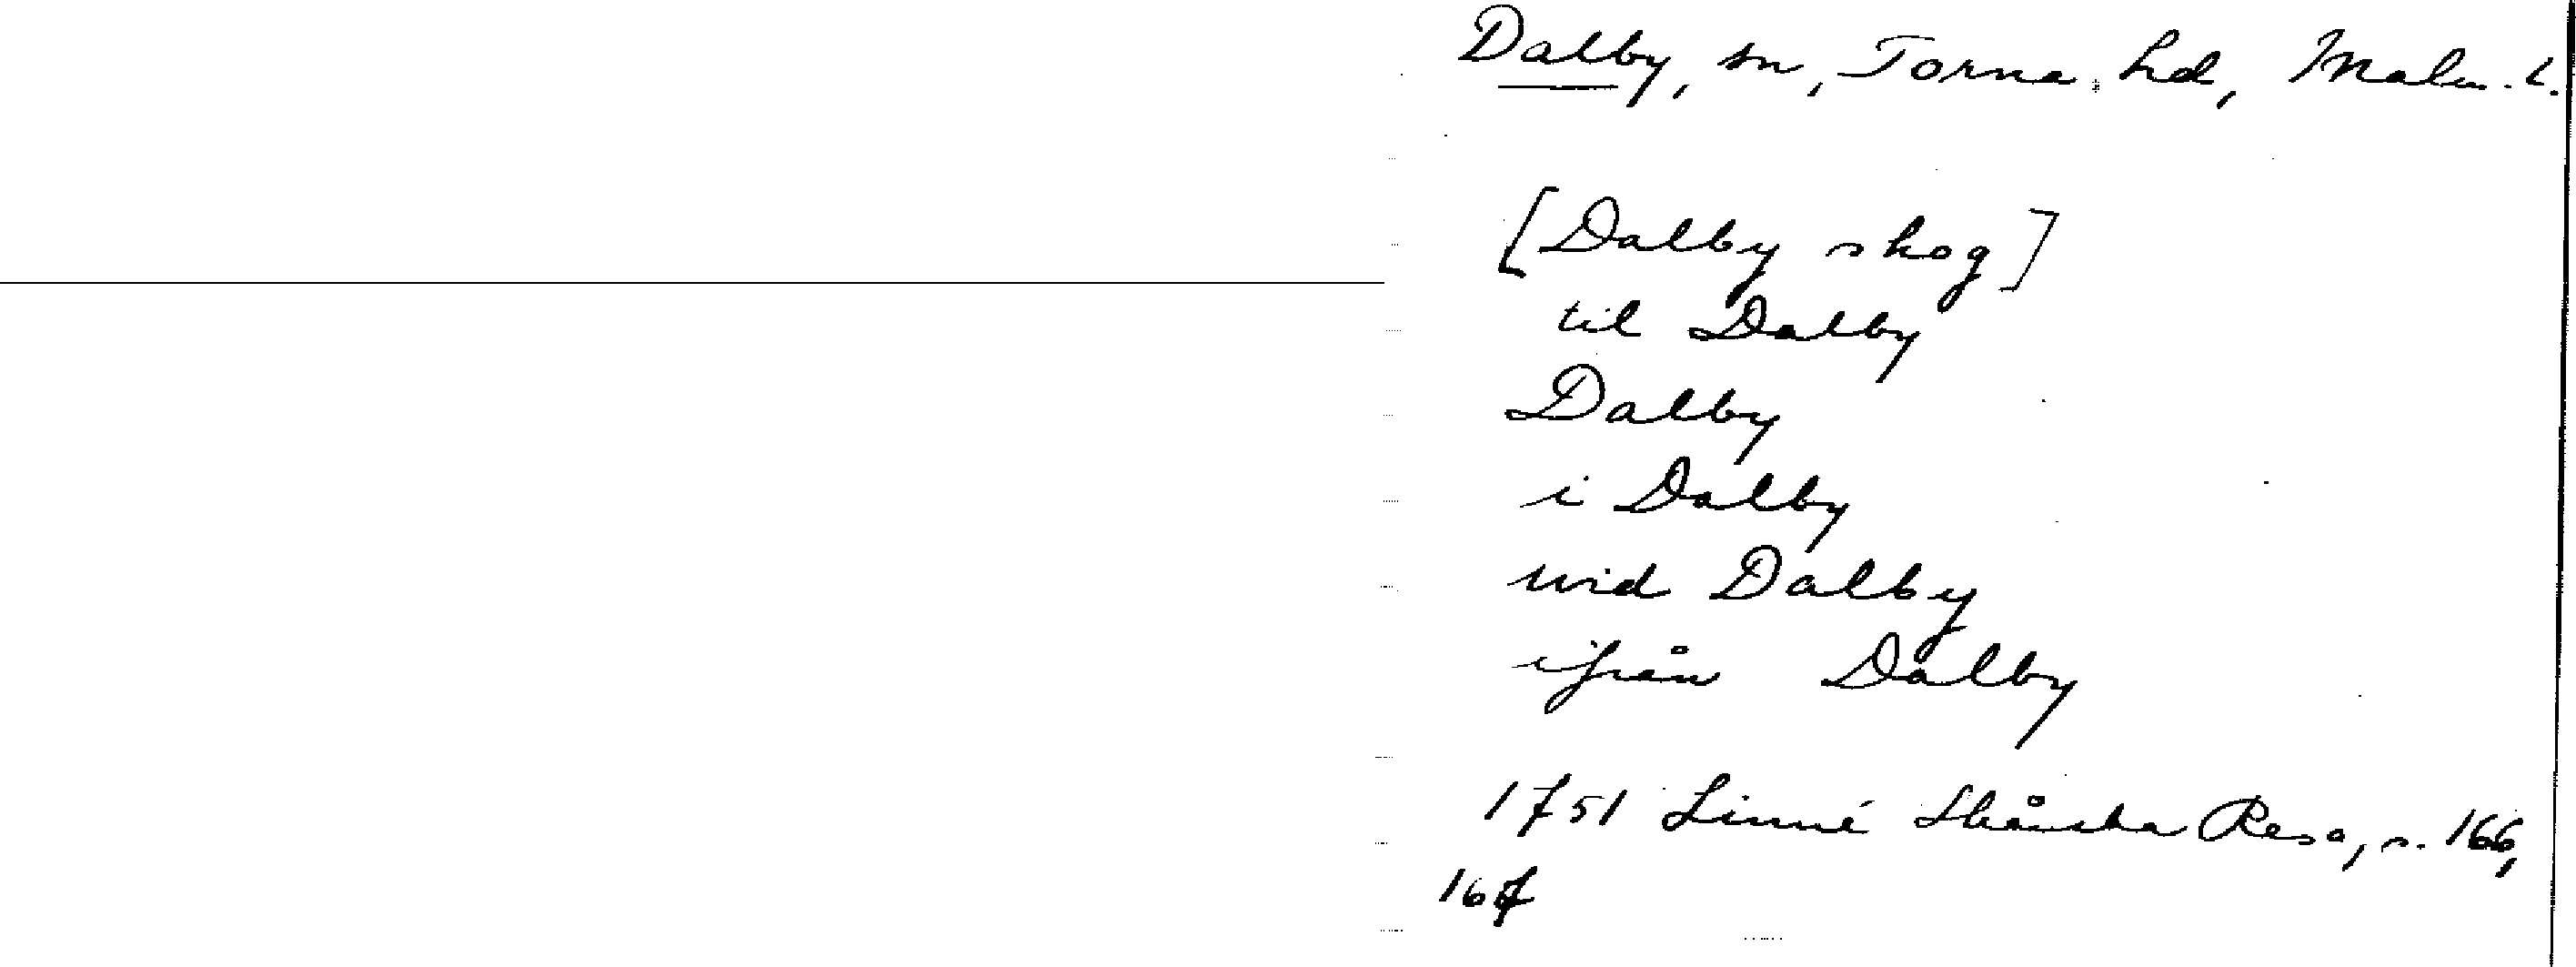 Dalby, sn, Torna hd, Malm. l.
[Dalby skog]
til Dalby
Dalby
i Dalby
wid Dalby
ifrån Dalby
1751 Linné Skånska Resa, s. 166,
167